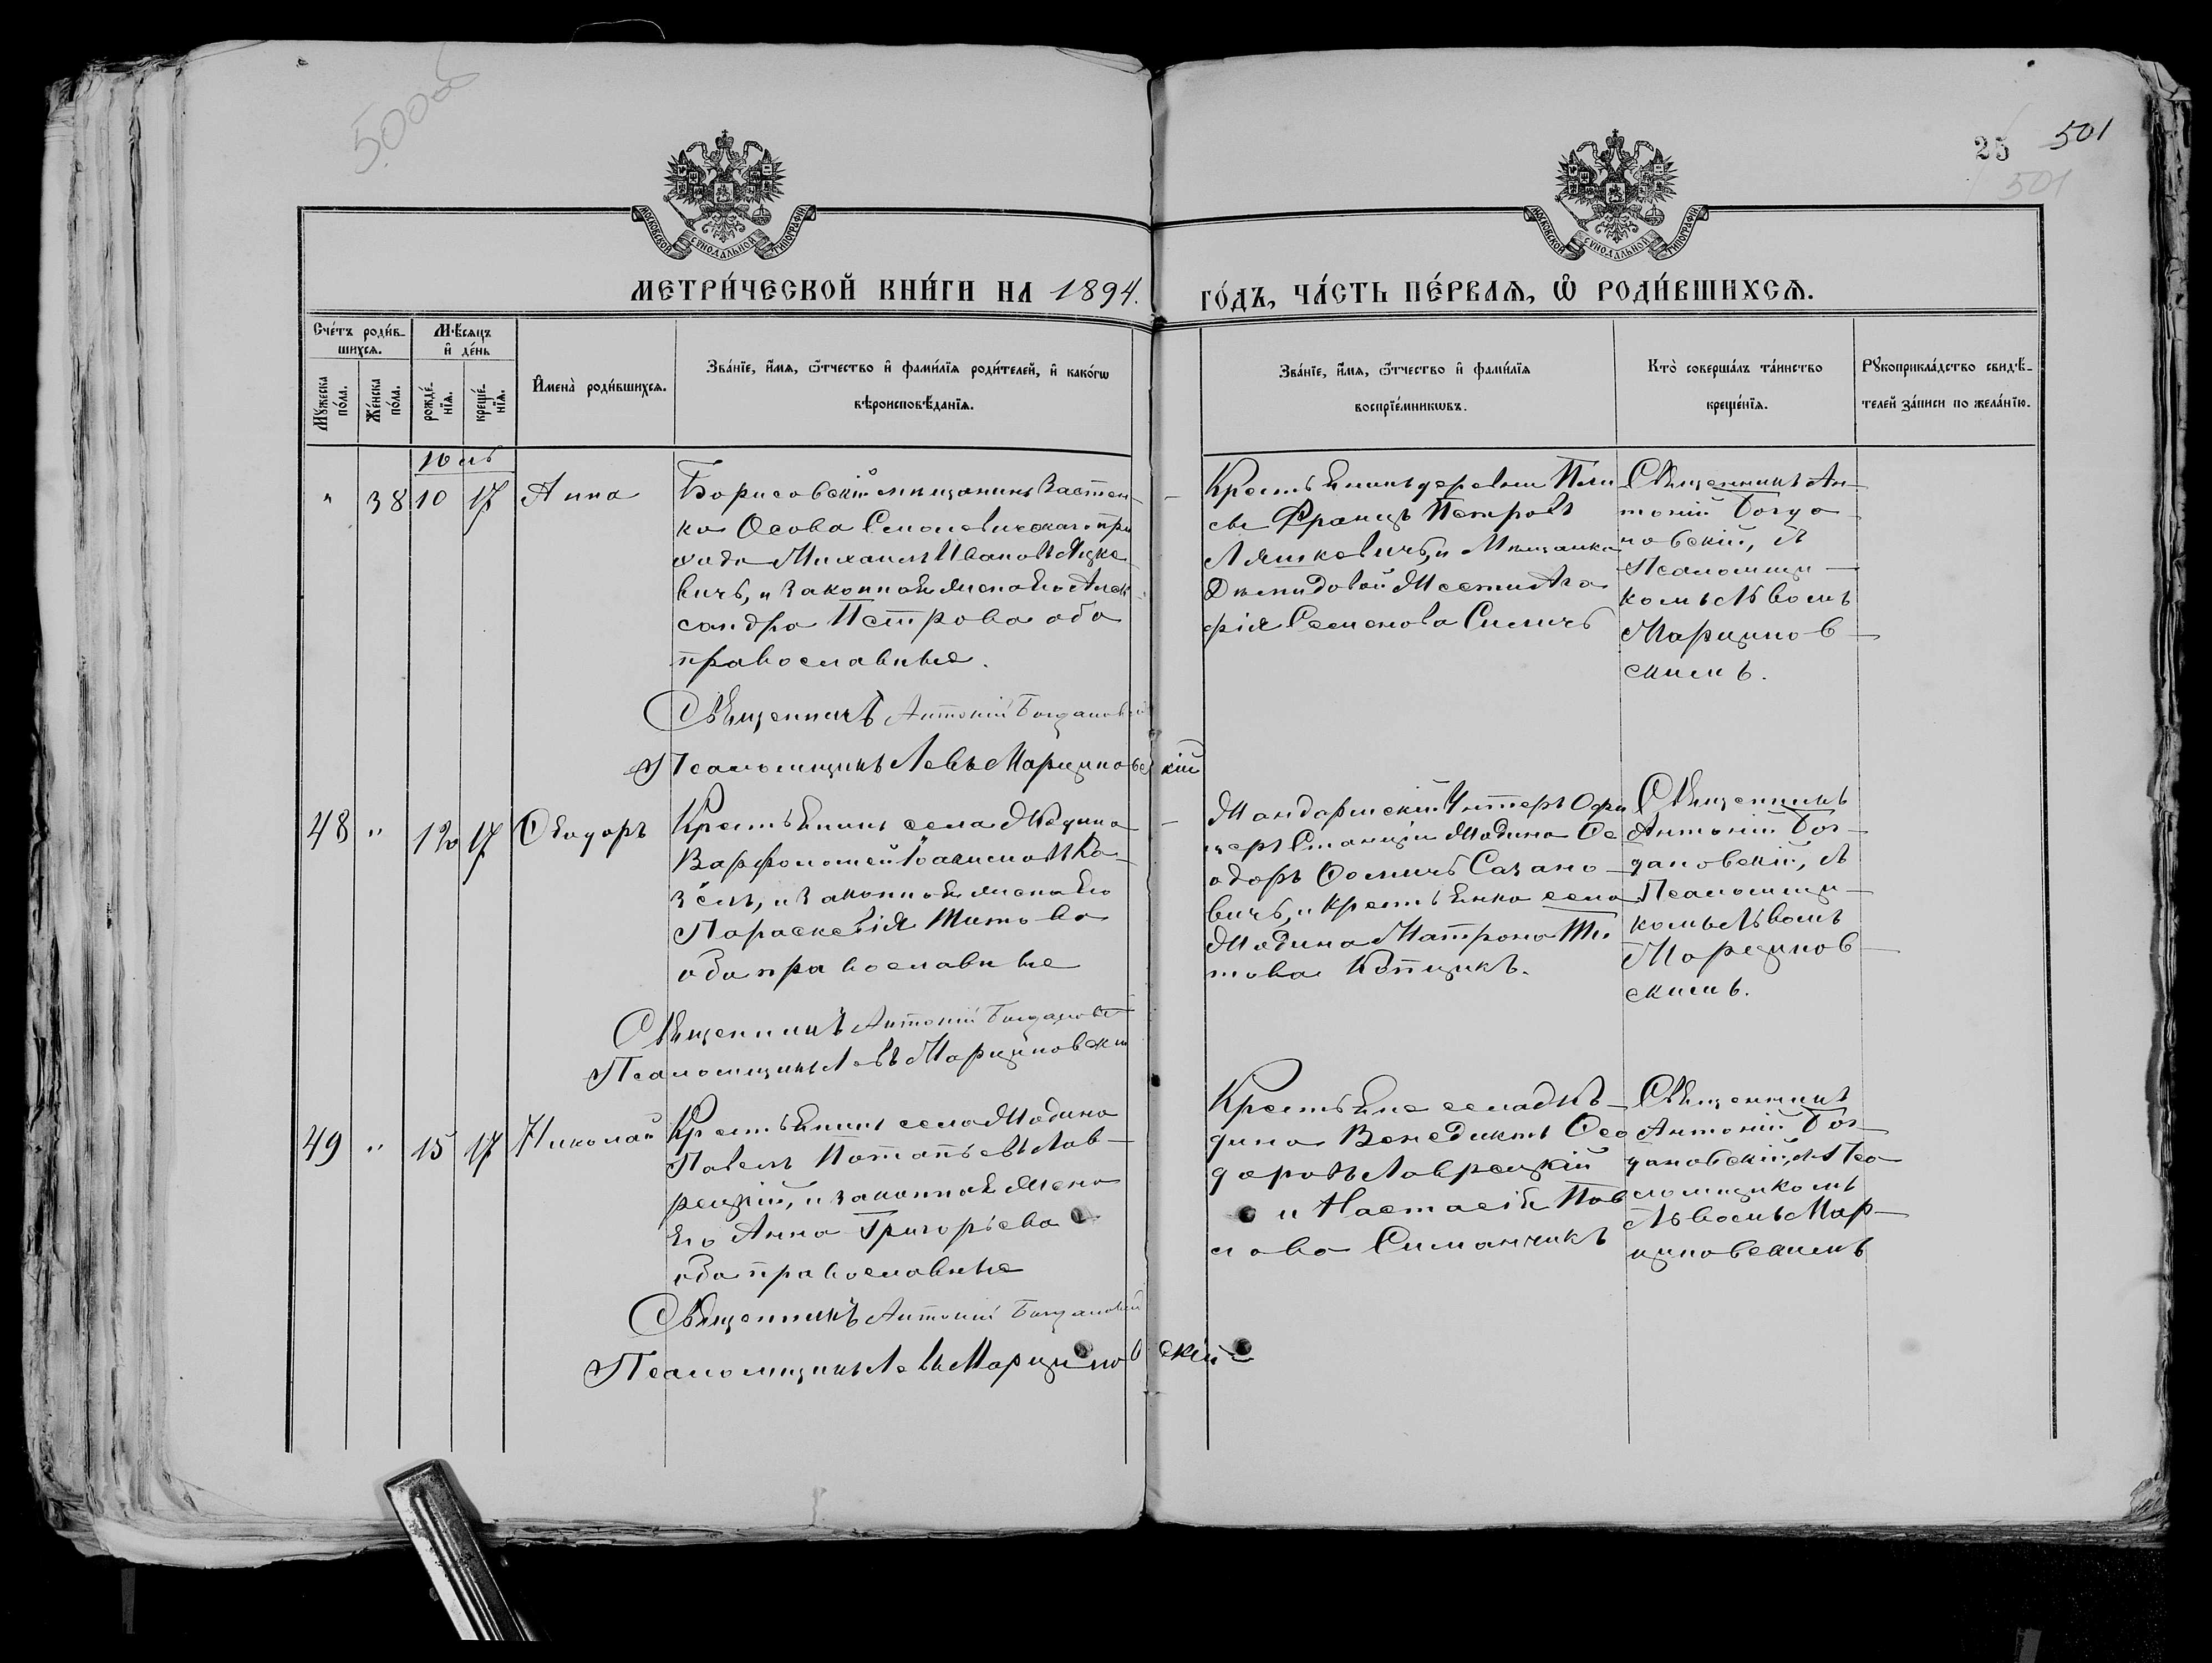 500об
25 501
501
МОСКОВСКОЙ СУНОДАЛЬНОЙ ТИПОГРАФІИ
МОСКОВСКОЙ СУНОДАЛЬНОЙ ТИПОГРАФІИ
МЕТРИ́ЧЕСКОЙ КНИ́ГИ НА 1894.
ГО́ДЪ, ЧА́СТЬ ПЕ́РВАѦ, Ѡ҆ РОДИ́ВШИХСѦ.
Сче́тъ роди́в-
шихсѧ.
Мѣ́сѧцъ
и҆ де́нь
Мꙋ́жеска по́ла.
Же́нска по́ла.
рожде́-
нїѧ.
креще́-
нїѧ.
И҆мена̀ роди́вшихсѧ.
Зва́нїе, и҆́мѧ, ѻ҆́тчество и҆ фами́лїѧ роди́телей, и҆ како́гѡ
вѣроисповѣ́данїѧ.
Зва́нїе, и҆́мѧ, ѻ҆́тчество и҆ фами́лїѧ
воспрїе́мникѡвъ.
Кто̀ соверша́лъ та́инство
креще́нїѧ.
Рꙋкоприкла́дство свидѣ́-
телей за́писи по жела́нїю.
" 38 10 17 Анна
Борисовскій мѣщанинъ Застѣн-
ка Осова Смолевичскаго при
хода Михаилъ Ивановъ Яцке
вичъ, и законная жена его Алек-
сандра Петрова оба
православные.
Священникъ Антоній Богдановскій
Псаломщикъ Левъ Марциновскій
Крестьянинъ деревни
Францъ Петровъ
Ляшкевичъ, и Мѣщанка
Ага
фія Семенова Силичъ
Священникъ Ан-
тоній Богда
новскій, съ
Псаломщи-
комъ Львомъ
Марцинов-
скимъ.
48 " 12 17 Ѳеодоръ
Крестьянинъ села Жодина
Варфоломей Іоакимовъ Ко-
зелъ, и законная жена его
Параскевія Титова
оба православные
Священникъ Антоній Богдановскій
Псаломщикъ Левъ Марциновскій
Жандармскій Унтеръ Офи
церъ Станціи Жодина Ѳе
одоръ Ѳомичъ Сазано-
вичъ, и крестьянка села
Жодина Матрона Ти
това Копцикъ.
Священникъ
Антоній Бог-
дановскій, съ
Псаломщи-
комъ Львомъ
Марцинов-
скимъ.
49 " 15 17 Николай
Крестьянинъ села Жодина
Павелъ Потапьевъ Лав-
рецкій, и законная жена
его Анна Григорьева
оба православные
Священникъ Антоній Богдановскій
Псаломщикъ Левъ Марциновскій
Крестьяне села Жо-
дина Венедиктъ Ѳео
доровъ Лаврецкій
и Настасія Пав
лова Симанчикъ
Священникъ
Антоній Бог-
дановскій, съ Пса
ломщикомъ
Львомъ Мар-
циновскимъ